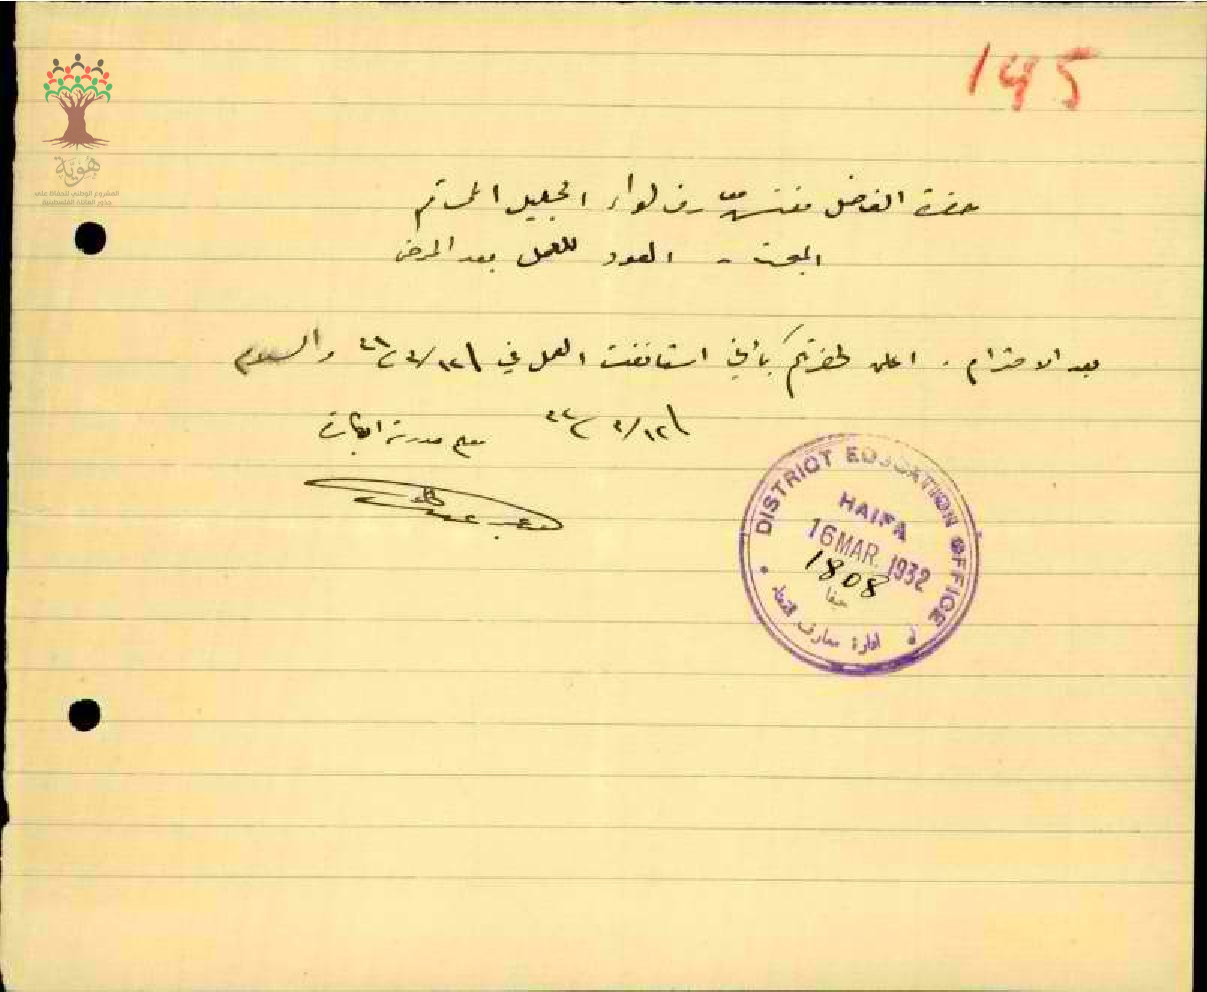 195
هوية
المشروع الوطني للحفاظ على
جذور العائلة الفلسطينية
حضرة الفاضل مفتش معارف لواء الجليل المحترم
المبحث - العود للعمل بعد المرض
بعد الاحترام . اعلن لحضرتكم بأني استأنفت العمل في ١٢/٣/ والسلام
١٢/٣/
معلم مدرسة
DISTRICT EDUCATION OFFICE
HAIFA
16 MAR. 1932
1808
حيفا
ادارة معارف